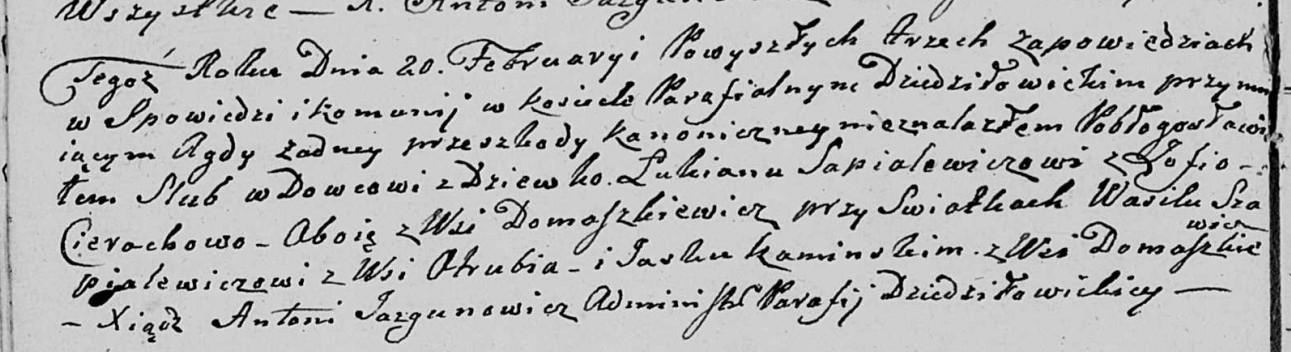 Wszystkie — X. Antoni
Tegoż Roku Dnia 20. Februaryi Powyszłych trzech zapowiedziach
w Spowiedzi i komunij w kosciele Parafialnym Dziedziłowickim przymu
iącym Agdy żadney przeszkody kanoniczney nieznalazłem Pobłogosławi
łem Slub wDowcowi z Dziewko. Łukianu Sapialewiczowi z Zofio -
Cierachowo - Oboię z Wsi Domaszkiewicz przy Swiatkach Wasilu Sza
pialewiczowi z Wsi Otrubia - i Jasku Kaminskim. z Wsi Domaszkie
wicz
- Xiądz Antoni Jazgunowicz Administr Parafij Dziedziłowickiey —